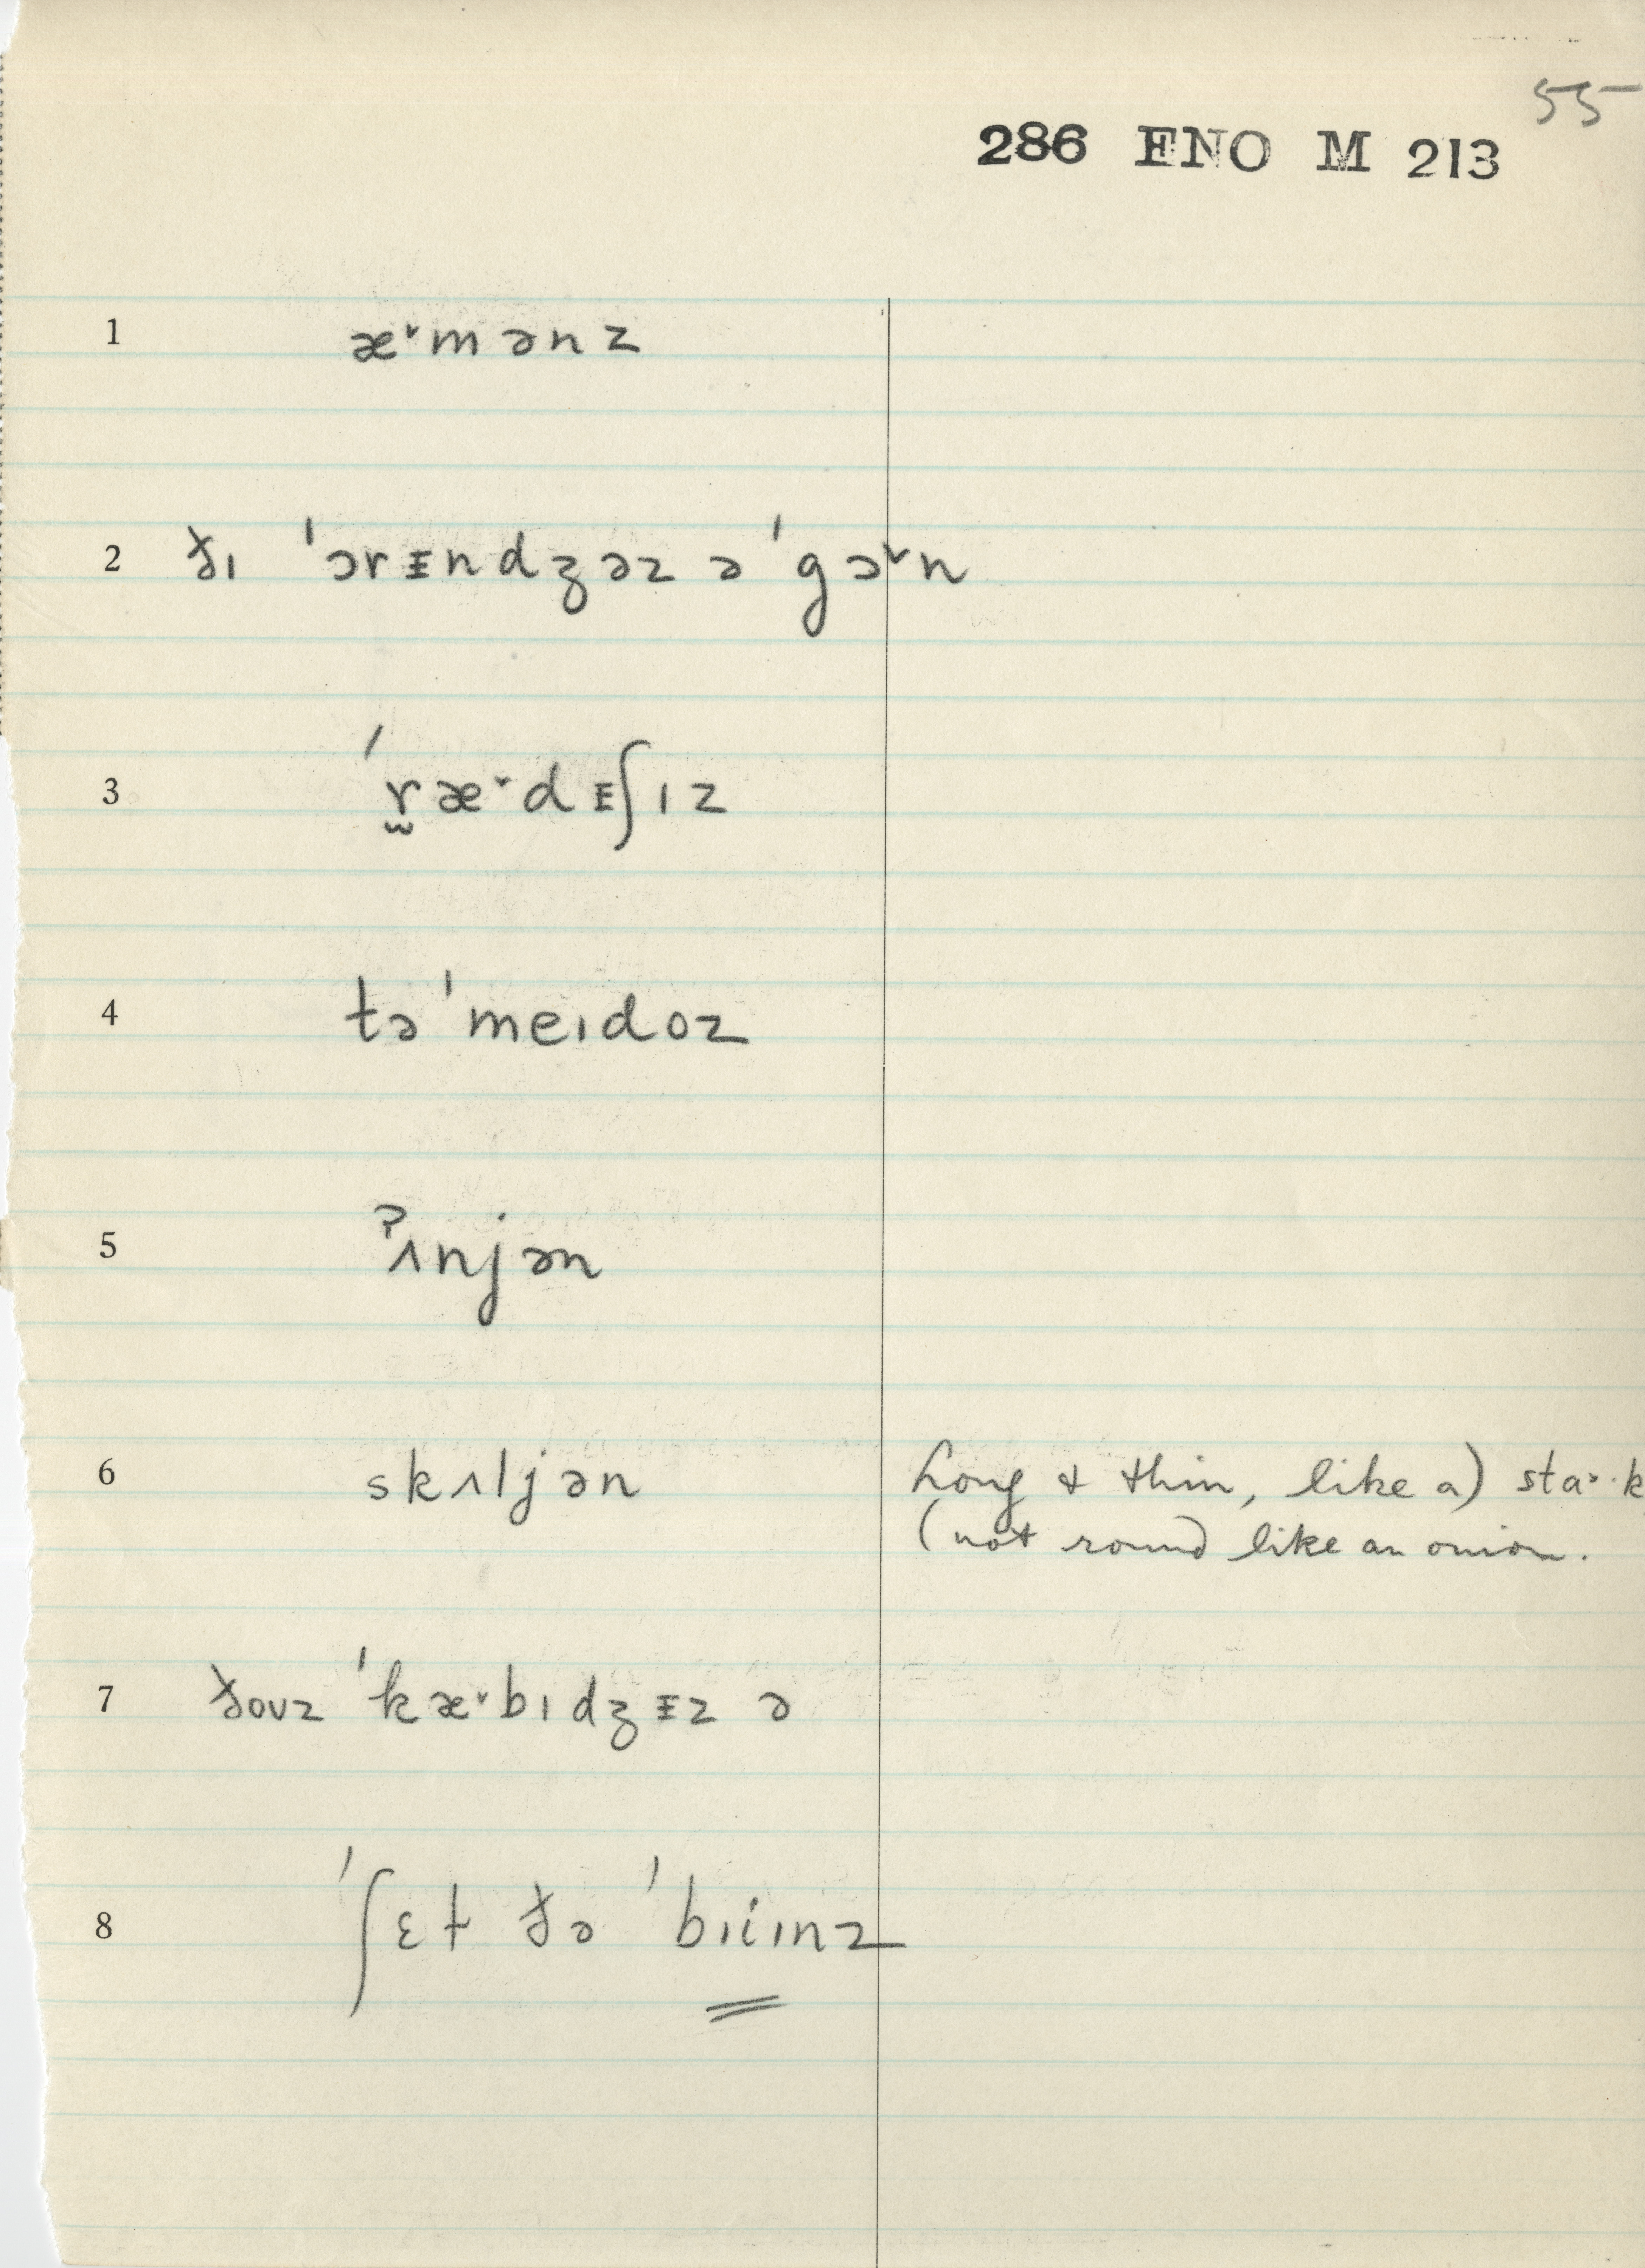 55
286 ENO M 213
1 æ˅mənz
2 ðɪ ˈɔrᵻndʒəz ə ˈgɔ˅n
3 ˈr̰æ˅dᵻʃɪz
4 təˈmeɪdoz
5 ˀʌnjən
6 skʌljən long & thin, like a) sta˃·k
(not round like an onion.
7 ðoʊz ˈkæ˅bɪdʒᵻz ə
8 ˈʃɛt ðə ˈbɪiɪnz